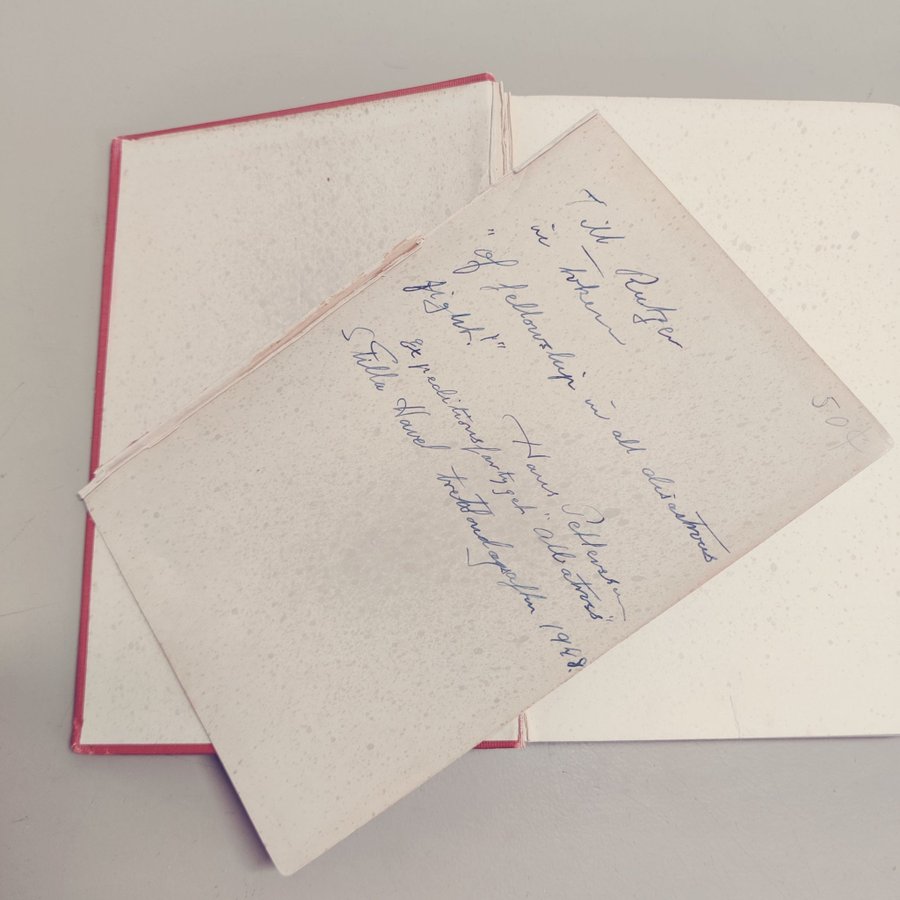 Till Rutger
in token
"of fellowship in all disastrous
fight!"
Hans Pettersson
Expeditionsfartyget "Albatross"
Stilla Havet trettondagsafton 1948.
50